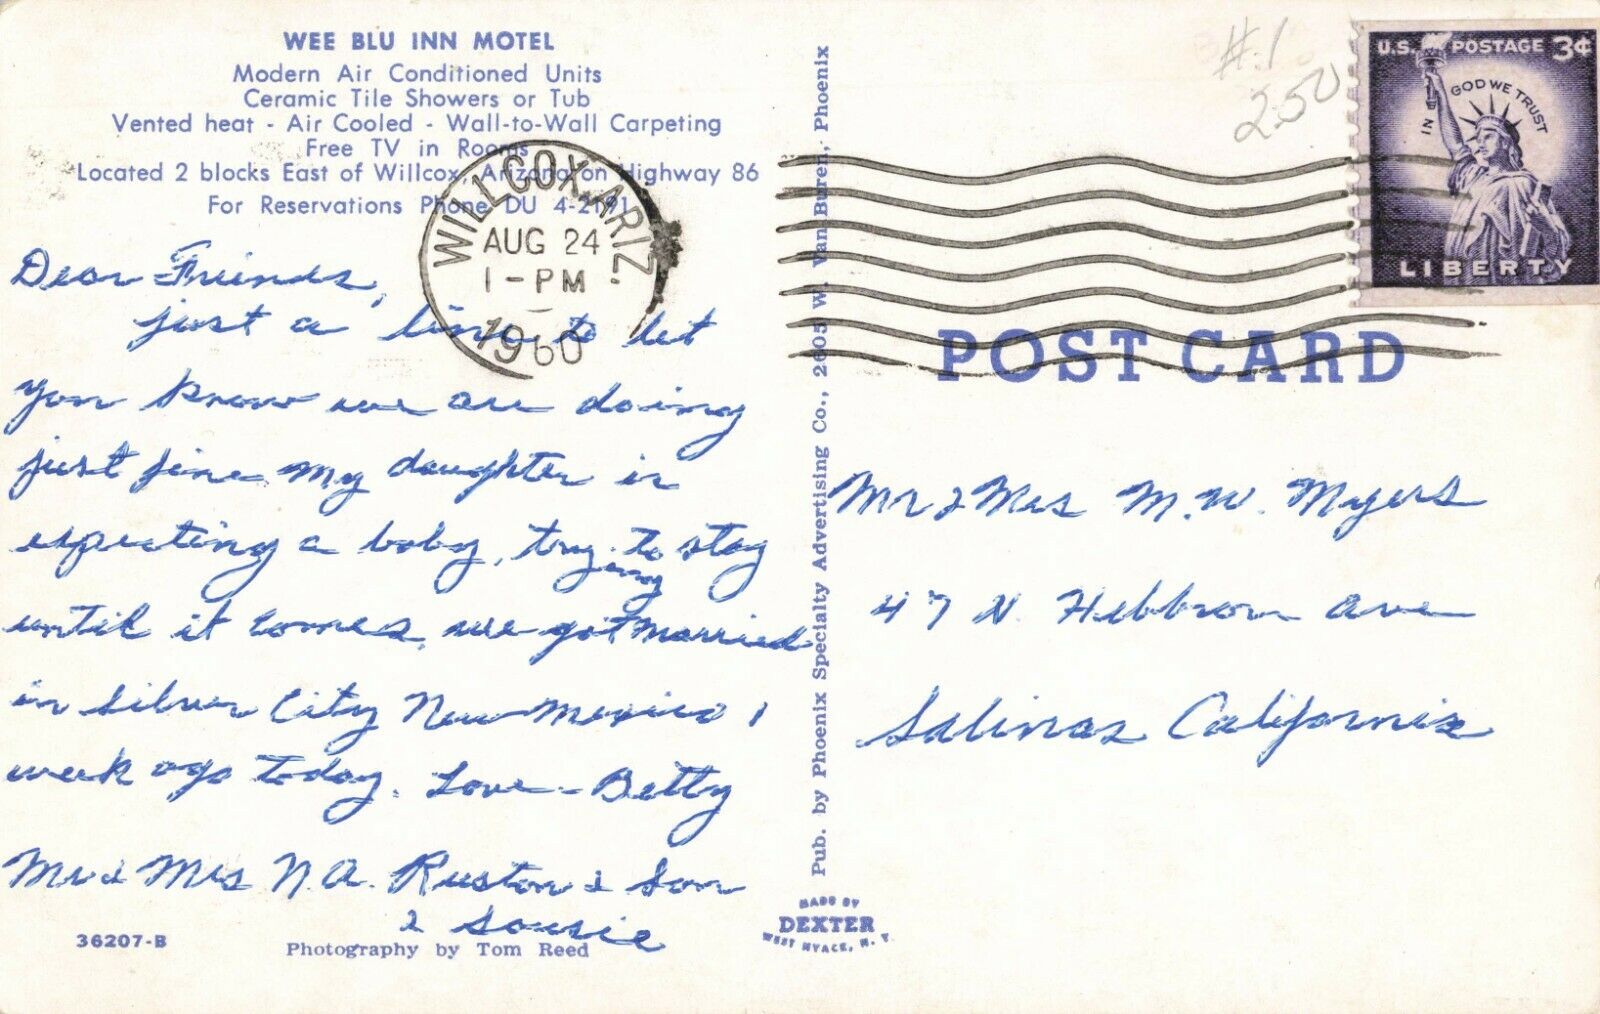 WEE BLU INN MOTEL
Modern Air Conditioned Units
Ceramic Tile Showers or Tub
Vented heat - Air Cooled - Wall-to-Wall Carpeting
Free TV in Rooms
Located 2 blocks East of Willcox, Arizona on Highway 86
For Reservations Phone DU 4-2191
WILLCOX, ARIZ.
AUG 24
1 - PM
1960
Dear Friends,
just a line to let
you know we are doing
just fine My daughter is
expecting a baby, try to stay
until it comes, we got married
in Silver City New Mexico 1
week ago today. Love - Betty
Mr & Mrs N.A. Ruston & Son
&
36207-B
Photography by Tom Reed
Pub. by Phoenix Specialty Advertising Co., 2605 W. Van Buren, Phoenix
MADE BY
DEXTER
WEST NYACK, N. Y.
#.1
2.50
U.S. POSTAGE 3¢
IN GOD WE TRUST
LIBERTY
POST CARD
Mr & Mrs M. W. Myers
47 N. Hebbron Ave
Salinas California